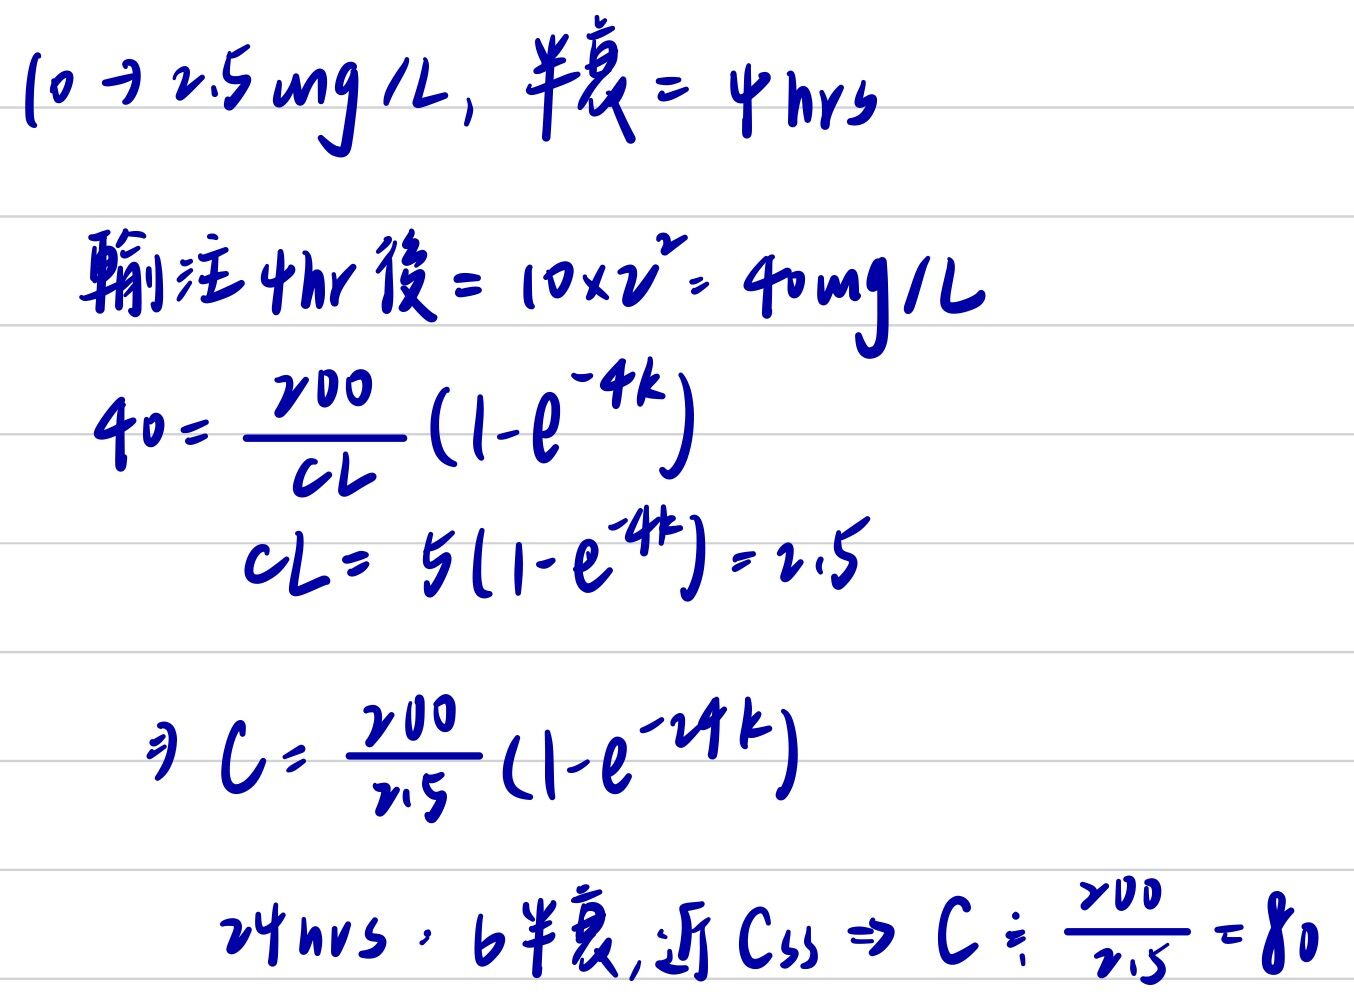 10 → 2.5 mg/L, 半衰 = 4 hrs
輸注 4hr 後 = 10×2² = 40 mg/L
40 = 200/CL (1-e^{-4k})
CL = 5(1-e^{-4k}) = 2.5
⇒ C = 200/2.5 (1-e^{-24k})
24 hrs, 6半衰, 近 Css ⇒ C ≒ 200/2.5 = 80